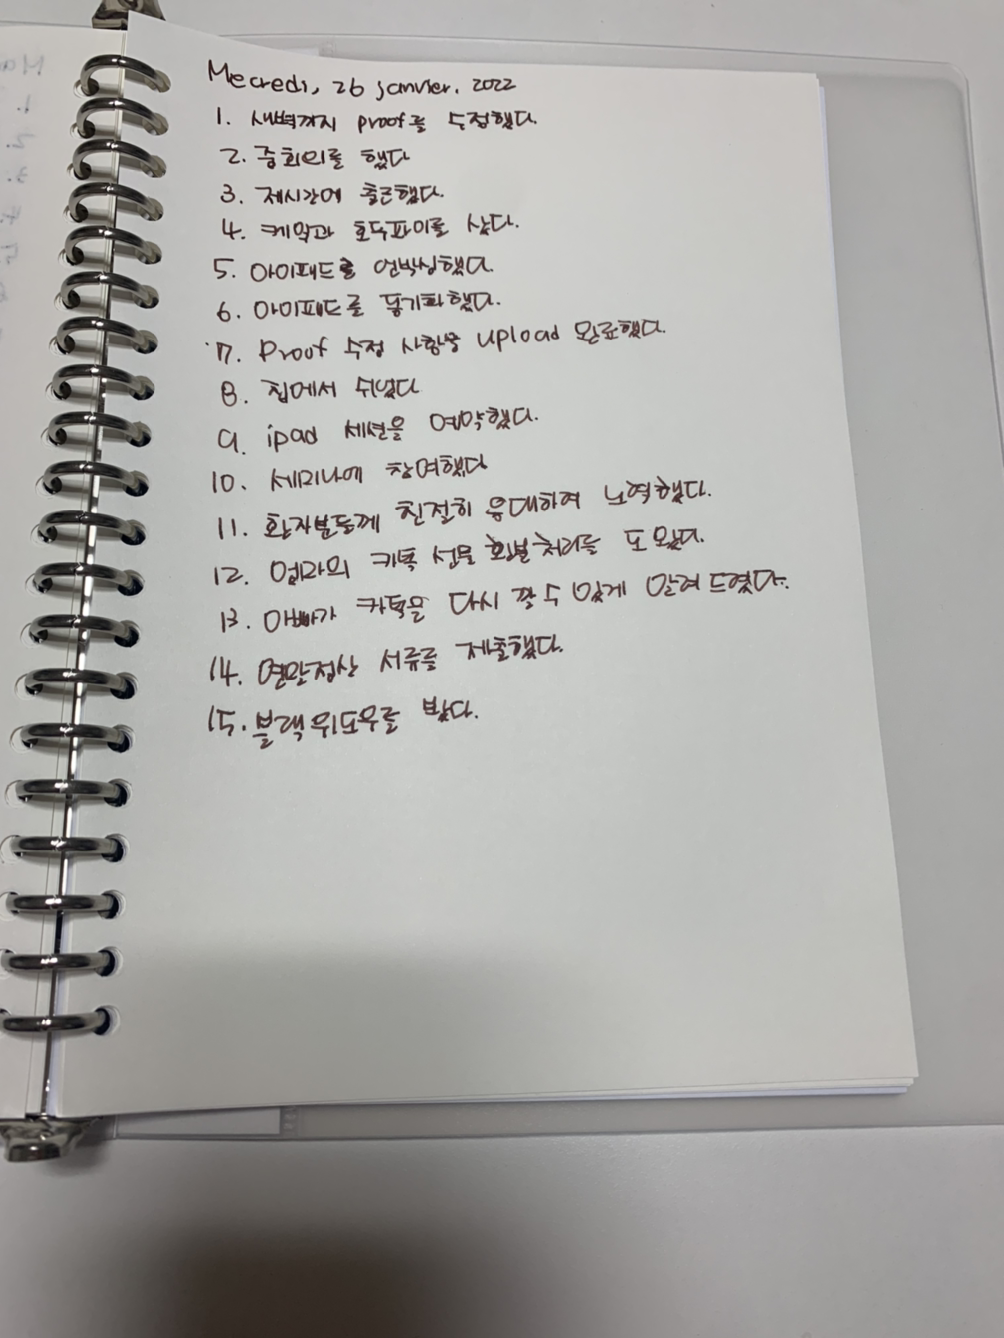 Mecredi, 26 janvier. 2022
1. 새벽까지 proof를 수정했다.
2. 줌회의를 했다
3. 제시간에 출근했다.
4. 케익과 호두파이를 샀다.
5. 아이패드를 언박싱했다.
6. 아이패드를 동기화했다.
7. Proof 수정 사항을 upload 완료했다.
8. 집에서 쉬었다
9. ipad 세션을 예약했다.
10. 세미나에 참여했다
11. 환자분들께 친절히 응대하려 노력했다.
12. 엄마의 카톡 선물 환불처리를 도왔다.
13. 아빠가 카톡을 다시 깔 수 있게 알려 드렸다.
14. 연말정산 서류를 제출했다.
15. 블랙위도우를 봤다.